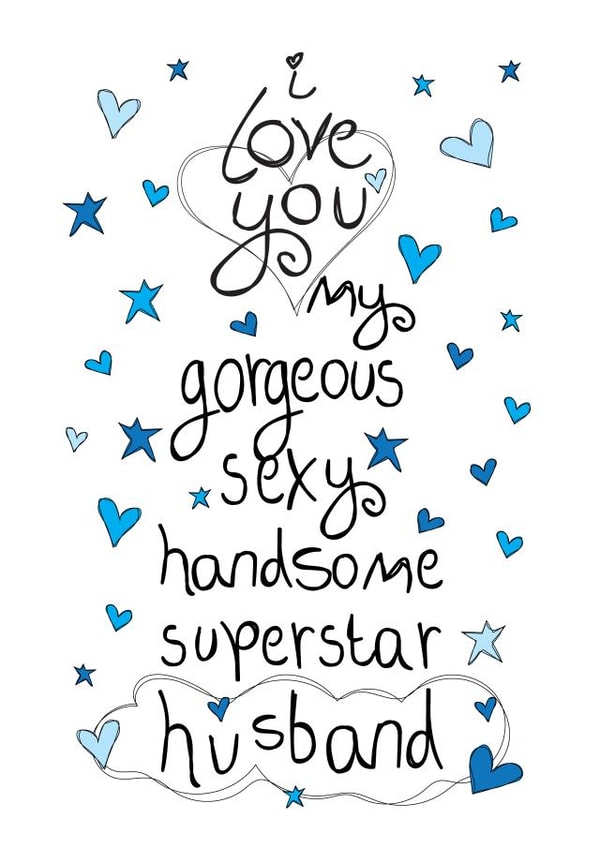 i
love
you
my
gorgeous
sexy
handsome
superstar
husband